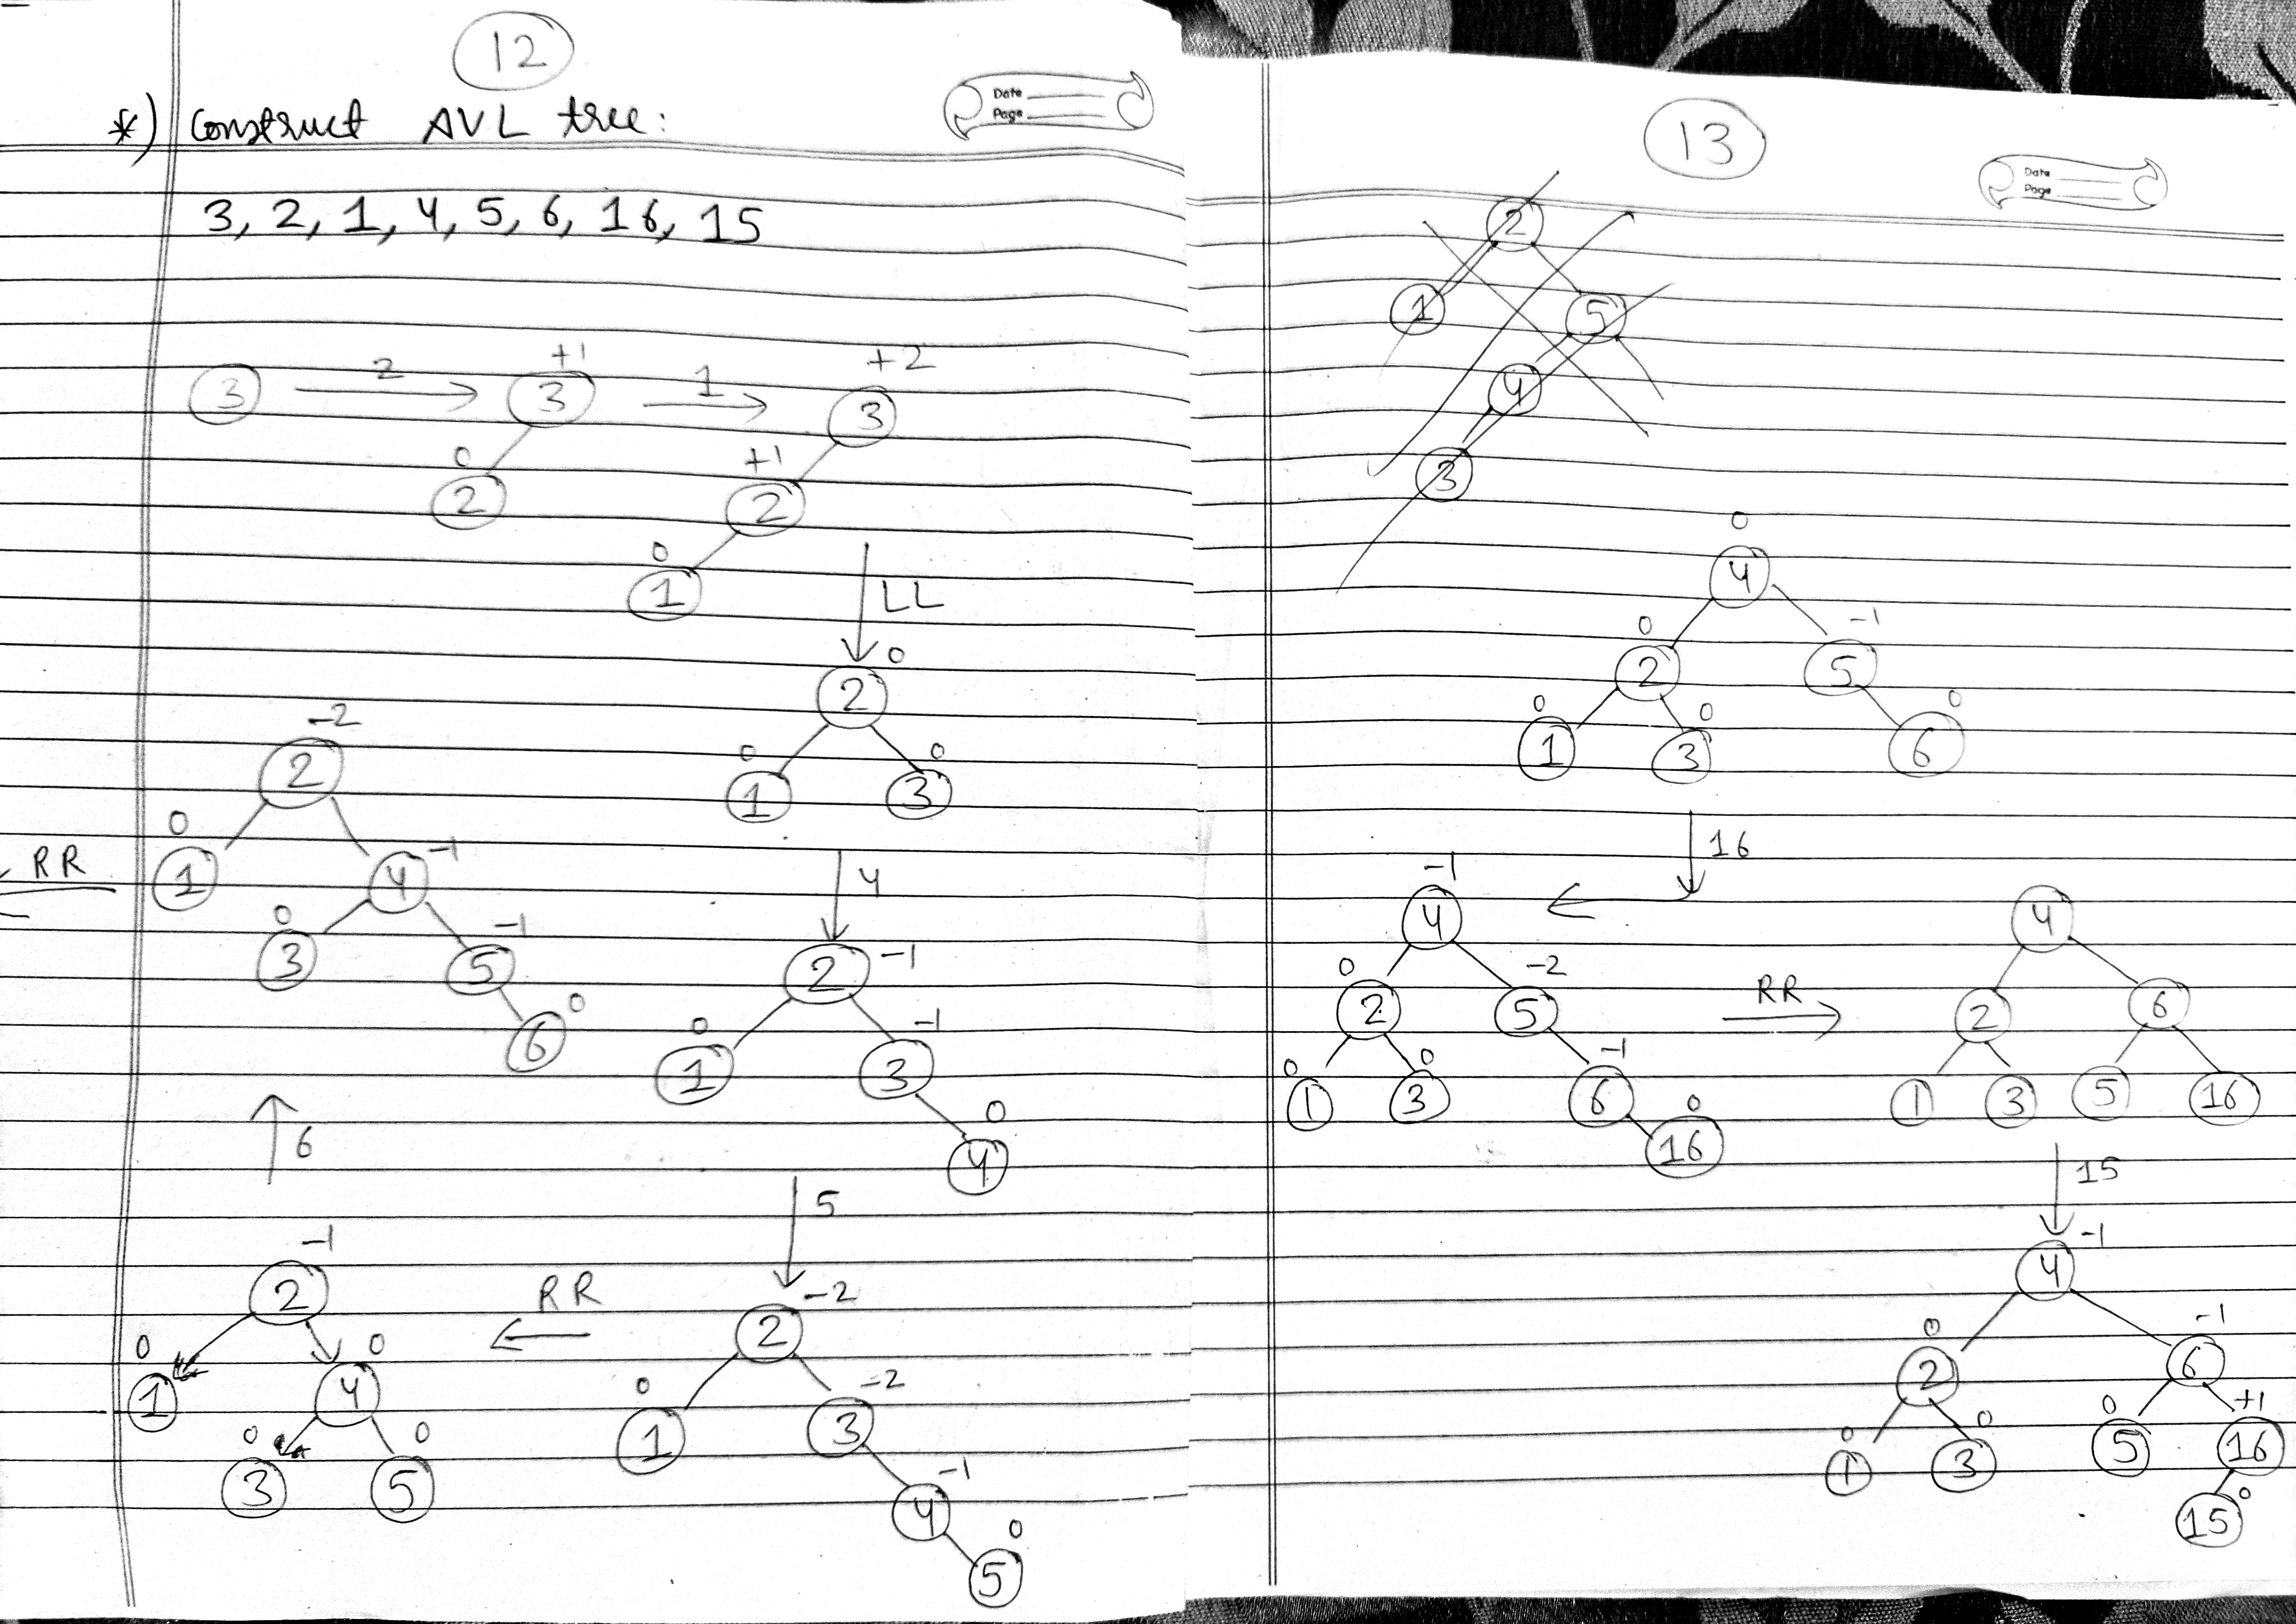 12
Date
Page
*) Construct AVL tree:
3, 2, 1, 4, 5, 6, 16, 15
+1 +2
3 2 3 1 3
0 +1
2 2
0
1 LL
0
2
0 0
1 3
4
2 -1
0 -1
1 3
0
4
5
2 -2
0 -2
1 3
-1
4
0
5
RR
-1
2
0 0
1 4
0 0
3 5
6
-2
2
0 -1
1 4
0 -1
3 5
0
6
RR
13
Date
Page
2
1 5
4
3
0
4
0 -1
2 5
0 0 0
1 3 6
16
-1
4
0 -2
2 5
0 0 -1
1 3 6
0
16
RR
4
2 6
1 3 5 16
15
-1
4
0 -1
2 6
0 0 0 +1
1 3 5 16
0
15